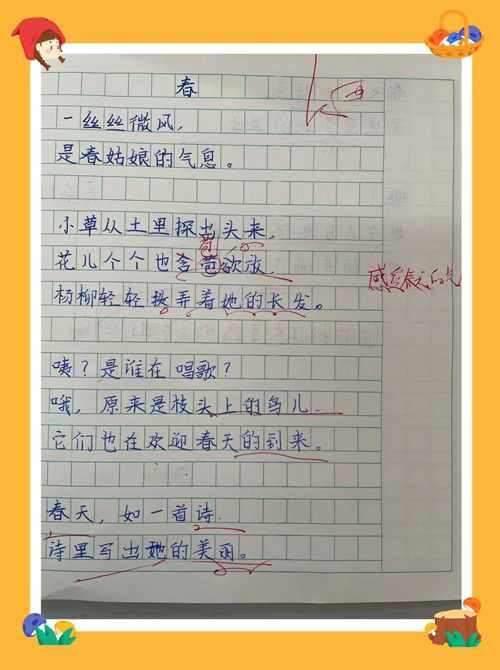 春
一丝丝微风,
是春姑娘的气息。
小草从土里探出头来,
苞
花儿个个也含苞欲放,
杨柳轻轻拨弄着她的长发。
感受春天的气
咦?是谁在唱歌?
哦,原来是枝头上的鸟儿.
它们也在欢迎春天的到来。
春天,如一首诗.
诗里写出她的美丽。